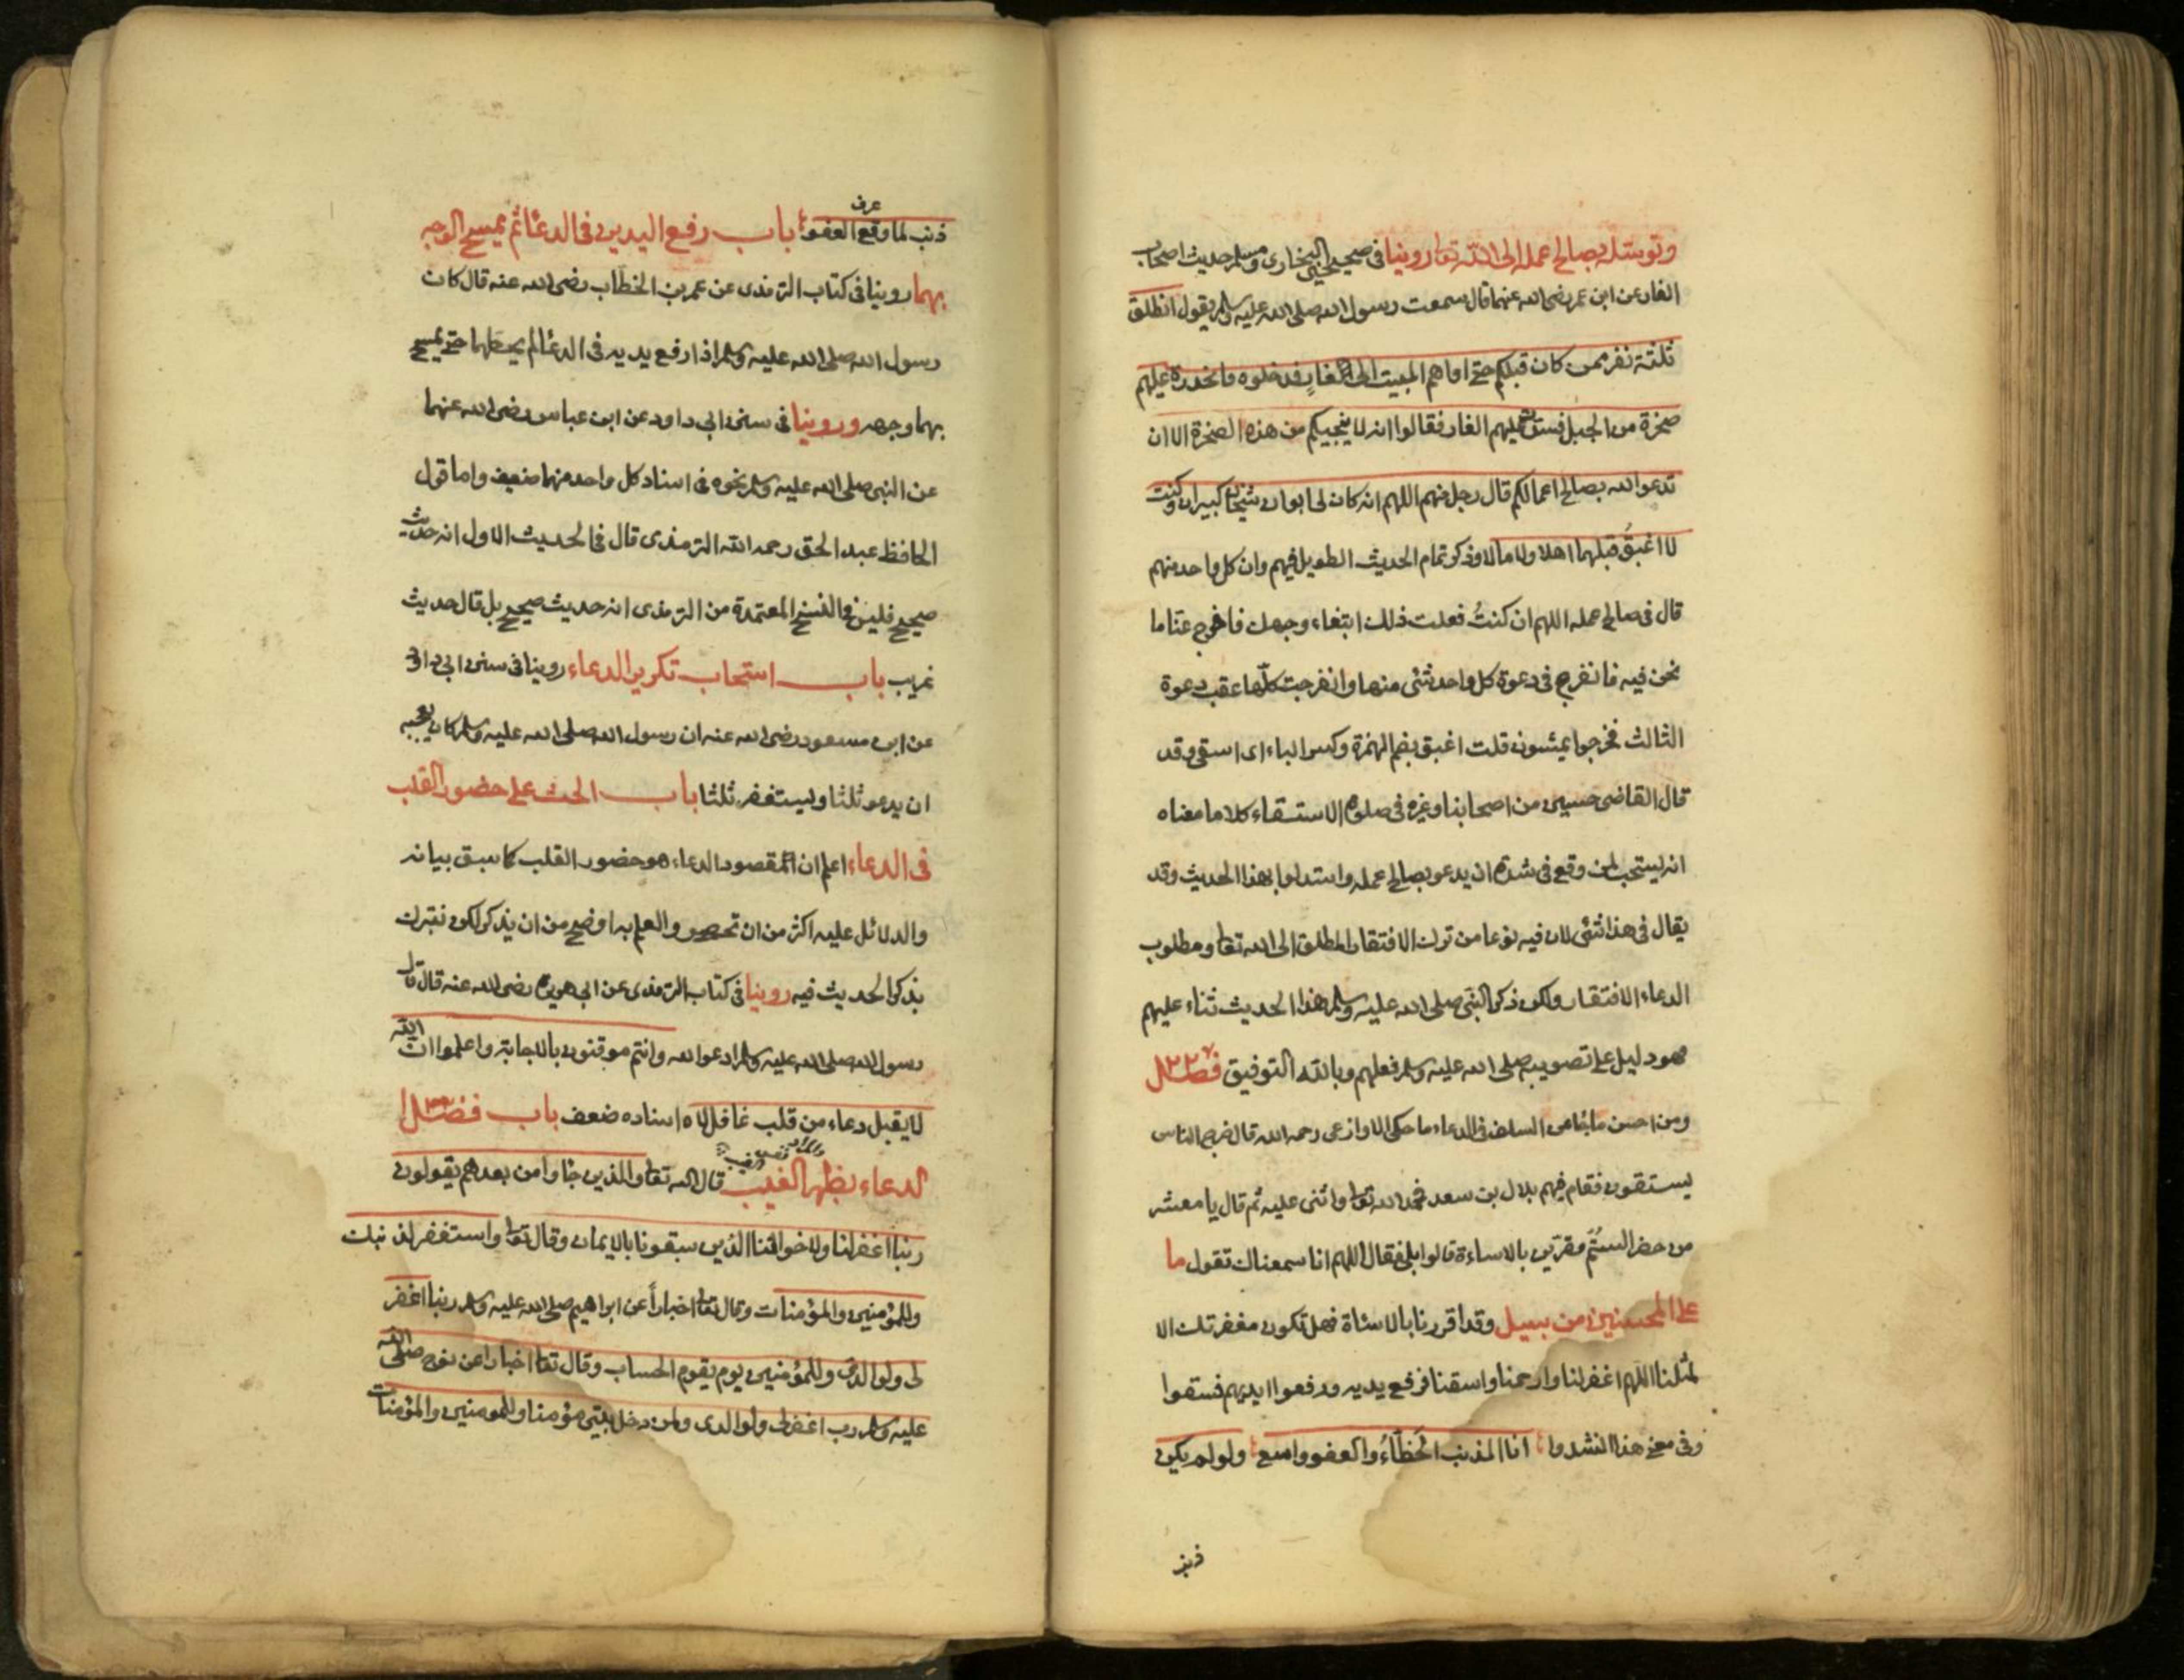 وتوسله بصالح عمله الى الله تعا روينا فى صحيحى البخارى ومسلم حديث اصحاب
الغار عن ابن عمر رضى الله عنهما قال سمعت رسول الله صلى الله عليه وسلم يقول انطلق
ثلثة نفر ممن كان قبلكم حتى اواهم المبيت الى الغار فدخلوه فانحدرة عليهم
صخرة من الجبل فسدت عليهم الغار فقالوا انه لا ينجيكم من هذه الصخرة الا ان
تدعوا الله بصالح اعمالكم قال رجل منهم اللهم انه كان لى ابوان شيخان كبيران وكنت
لا اغبق قبلهما اهلا ولا مالا وذكر تمام الحديث الطويل فيهم وان كل واحد منهم
قال فى صالح عمله اللهم ان كنتُ فعلت ذلك ابتغاء وجهك فافرج عنا ما
نحن فيه فانفرج فى دعوة كل واحد شئ منها وانفرجت كلّها عقب دعوة
الثالث فخرجوا يمشون قلت اغبق بضم الهمزة وكسر الباء اى اسقى وقد
قال القاضى حسين من اصحابنا وغيره فى صلوة الاستسقاء كلاما معناه
انه ليستحب لمن وقع فى شدة ان يدعو بصالح عمله واستدلوا بهذا الحديث وقد
يقال فى هذا شئى لان فيه نوعا من ترك الافتقار المطلق الى الله تعا ومطلوب
الدعاء الافتقار ولكن ذكر النبى صلى الله عليه وسلم هذا الحديث ثناء عليهم
فهو دليل على تصويبه صلى الله عليه وسلم فعلهم وبالله التوفيق فصل
ومن احسن ما جا من السلف فى الدعاء ما حكى الاوازعى رحمه الله قال خرج الناس
يستقون فقام فيهم بلال بن سعد فحمد الله تعا واثنى عليه ثم قال يا معشر
من حضر الستم مقرّين بالاساءة قالوا بلى فقال اللهم انا سمعناك تقول ما
على المحسنين من سبيل وقد اقررنا بالاسئاة فهل تكون مغفرتك الا
لمثلنا اللهم اغفر لنا وارحمنا واسقنا فرفع يديه ورفعوا ايديهم فسقوا
وفى معنى هذا انشدوا انا المذنب الخطّاءُ والعفو واسع ولو لم يكن
ذنب
ذنب لما وقع العفو عرف باب رفع اليدين فى الدعا ثم يمسح الوجه
بهما روينا فى كتاب الترمذى عن عمر بن الخطاب رضى الله عنه قال كان
رسول الله صلى الله عليه وسلم اذا رفع يديه فى الدعا لم يحطهما حتى يمسح
بهما وجهه وروينا فى سنن ابى داود عن ابن عباس رضى الله عنهما
عن النبى صلى الله عليه وسلم نحوه فى اسناد كل واحد منهما ضعيف واما قول
الحافظ عبد الحق رحمه الله الترمذى قال فى الحديث الاول انه حديث
صحيح فليس فى النسخ المعتمدة من الترمذى انه حديث صحيح بل قال حديث
غريب باب استحباب تكرير الدعاء روينا فى سنن ابى داود
عن ابن مسعود رضى الله عنه ان رسول الله صلى الله عليه وسلم كان يعجبه
ان يدعو ثلثا وليستغفر ثلثا باب الحث على حضور القلب
فى الدعاء اعلم ان المقصود الدعاء هو حضور القلب كما سبق بيانه
والدلائل عليه اكثر من ان تحصر والعلم به اوضح من ان يذكر لكن نتبرك
بذكر الحديث فيه روينا فى كتاب الترمذى عن ابى هريرة رضى الله عنه قال قال
رسول الله صلى الله عليه وسلم ادعوا الله وانتم موقنون بالاجابة واعلموا ان الله
لا يقبل دعاء من قلب غافل لاه اسناده ضعف باب فضل
الدعاء بظهر الغيب قال الله تعا والذين جاوا من بعدهم يقولون
ربنا اغفر لنا ولاخواننا الذين سبقونا بالايمان وقال تعا واستغفر لذنبك
وللمؤمنين والمؤمنات وقال تعا اخباراً عن ابراهيم صلى الله عليه وسلم ربنا اغفر
لى ولوالدى وللمؤمنين يوم يقوم الحساب وقال تعا اخبارا عن نوح صلى الله
عليه وسلم رب اغفر لى ولوالدى ولمن دخل بيتى مؤمنا وللمومنين والمؤمنات